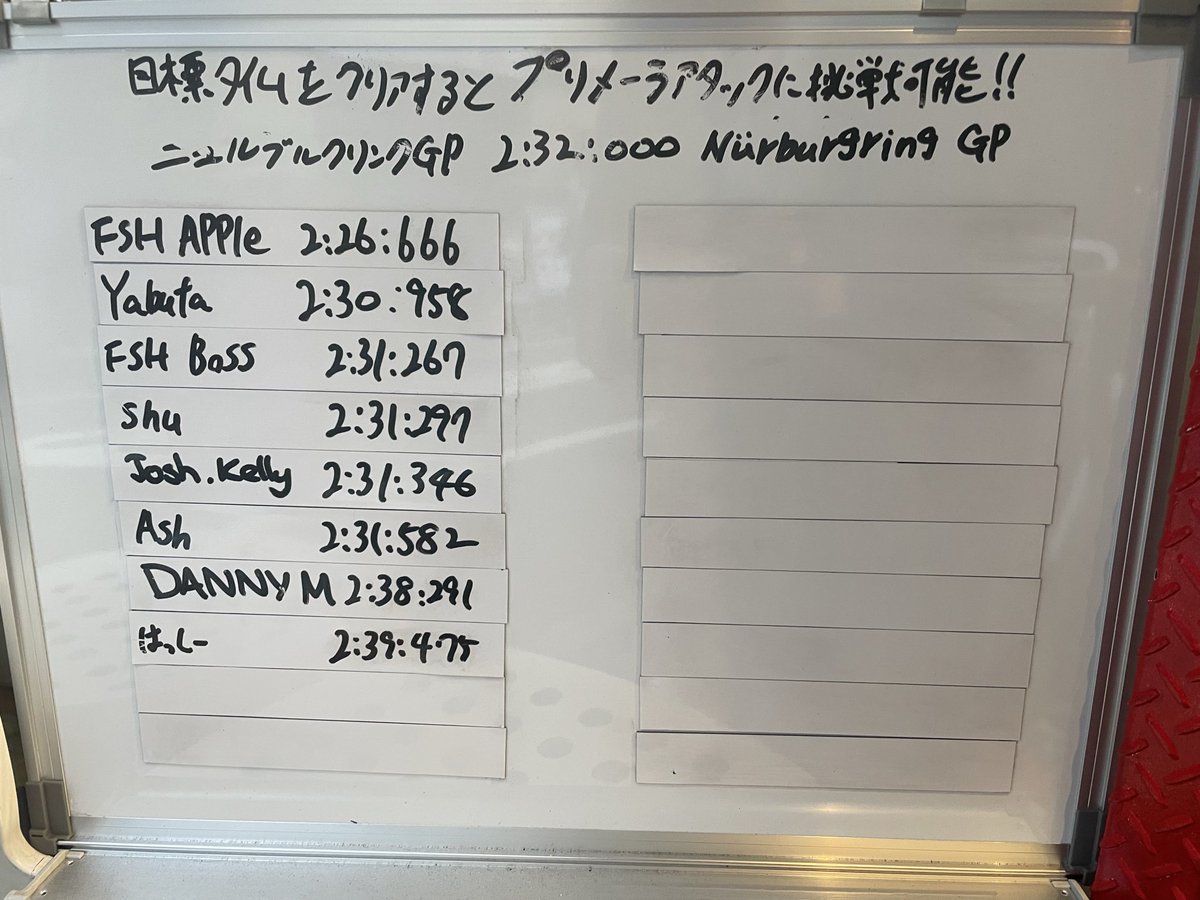 目標タイムをクリアするとプリメーラアタックに挑戦可能!!
ニュルブルクリンクGP 2:32:000 Nürburgring GP
FSH APPle 2:26:666
Yabuta 2:30:958
FSH Boss 2:31:267
shu 2:31:297
Josh.Kelly 2:31:346
Ash 2:31:582
DANNY M 2:38:291
はっしー 2:39:475